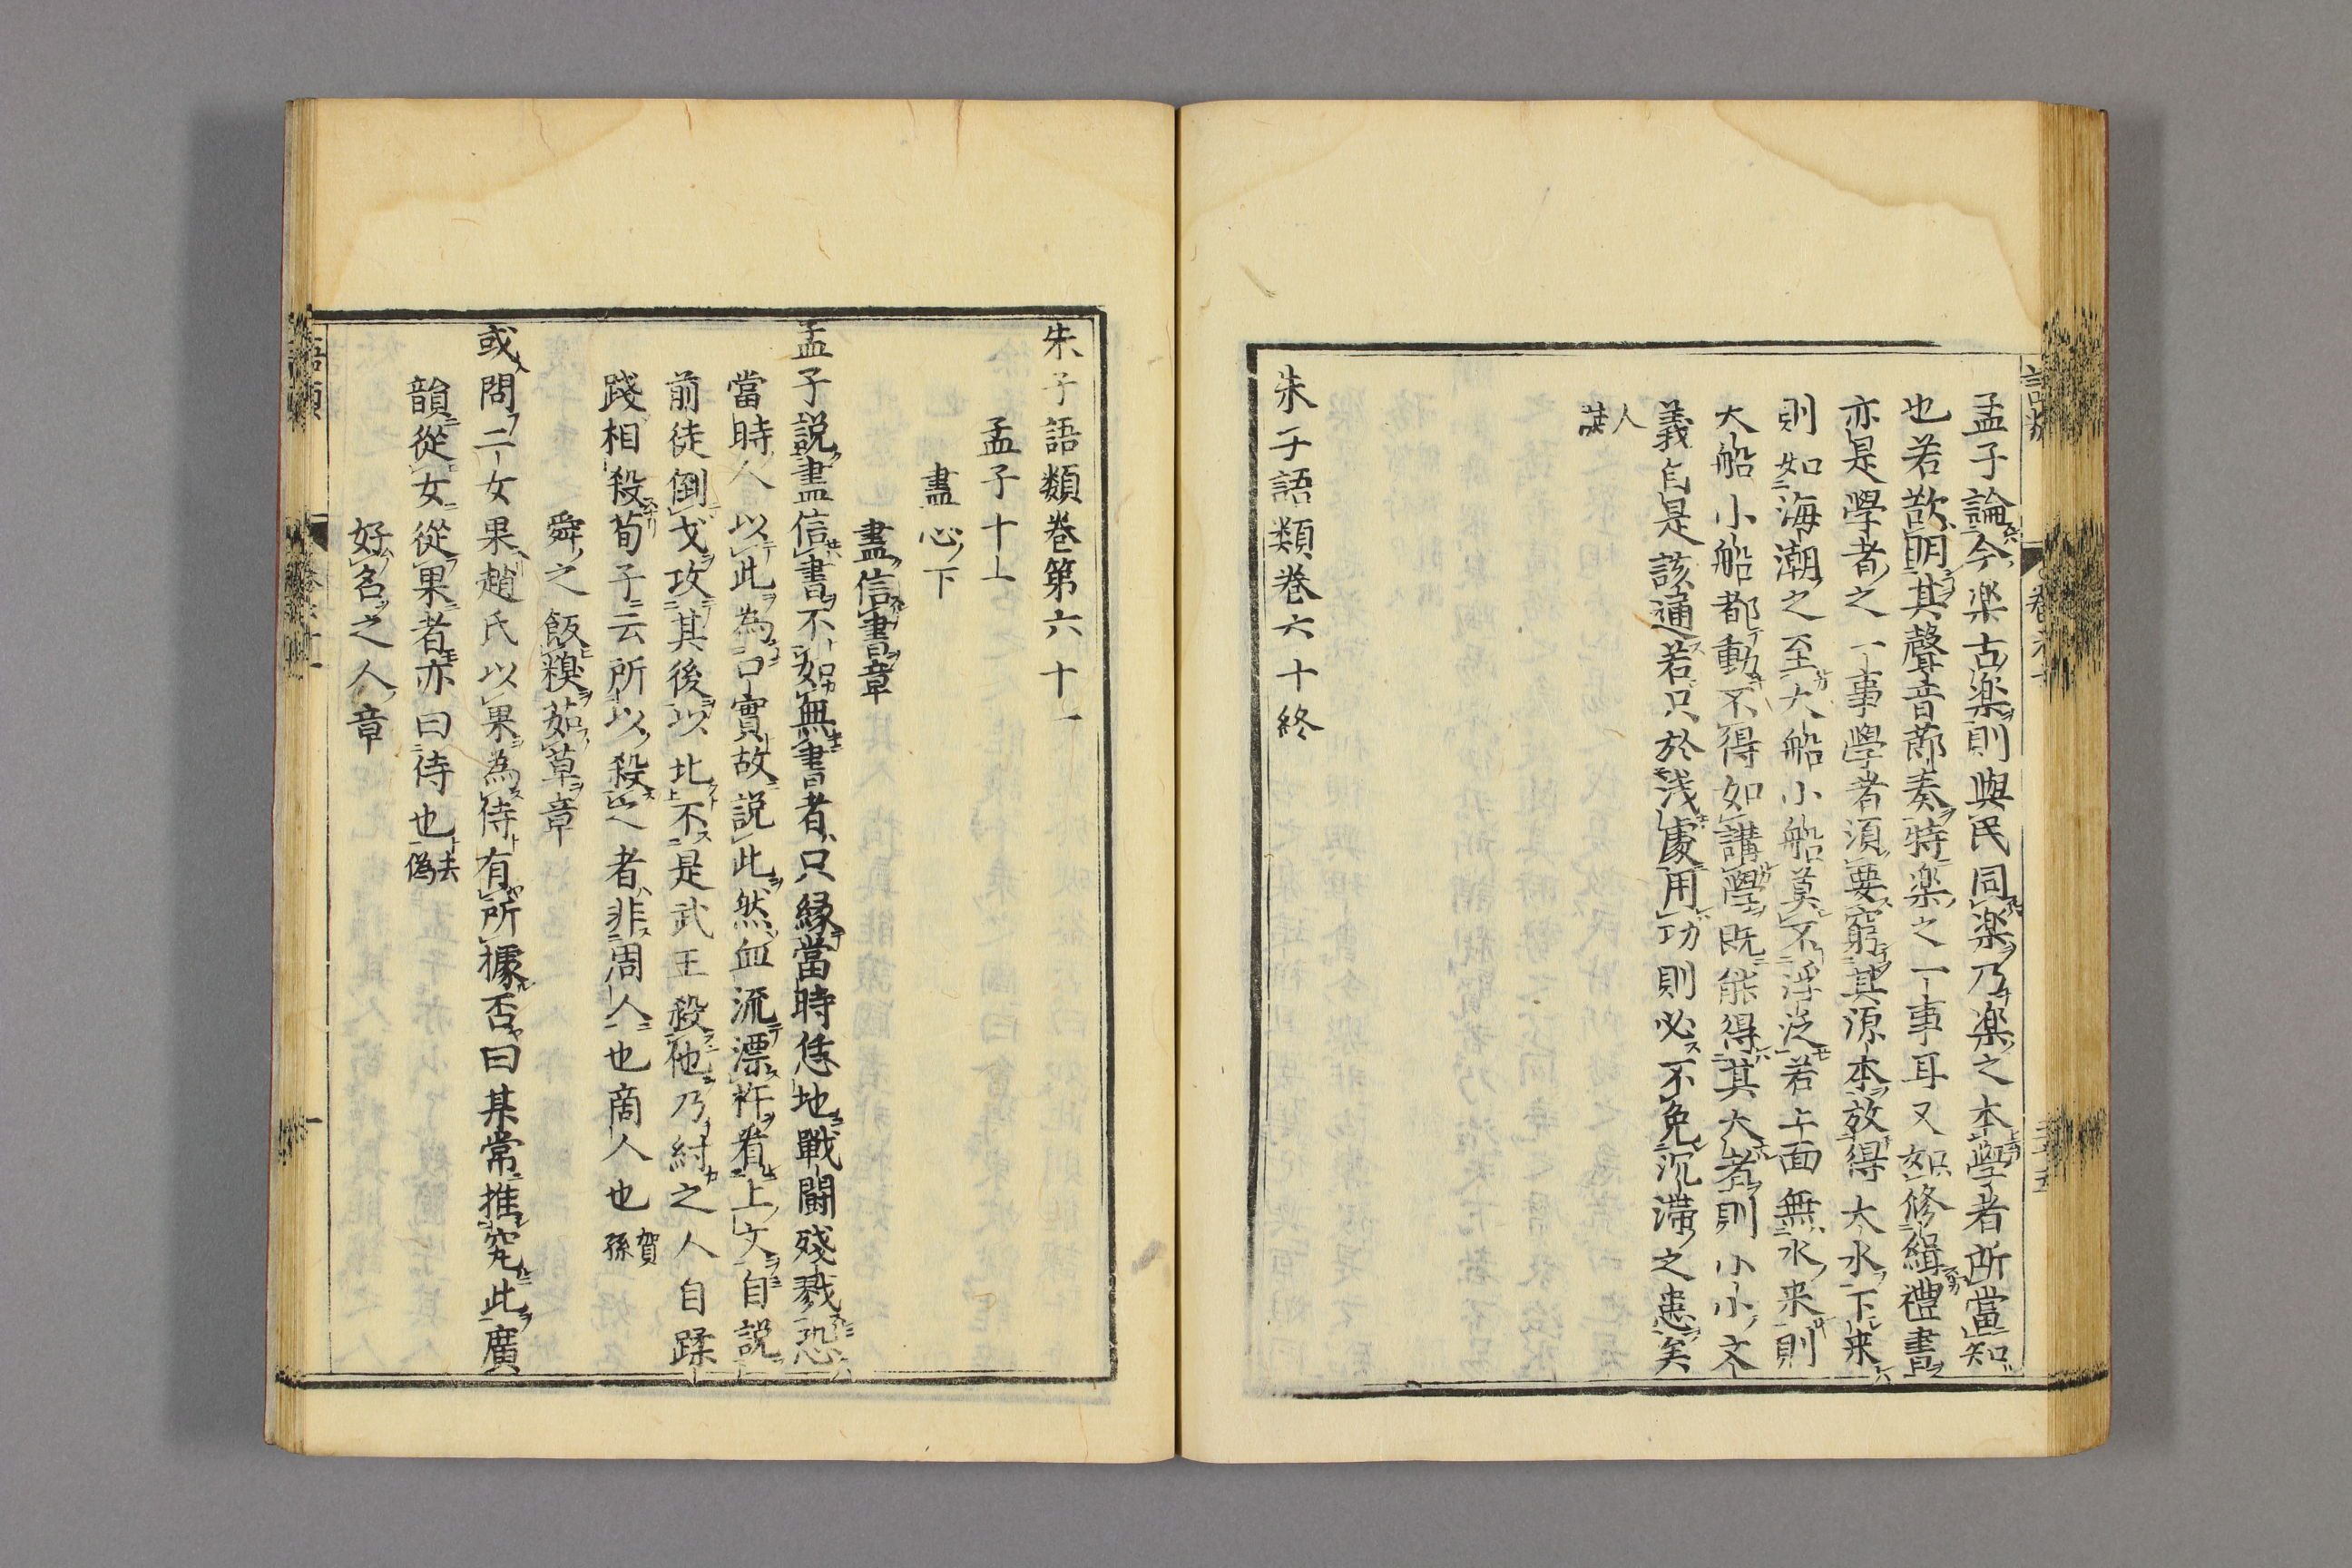 孟子論今楽古楽則與民同楽乃楽之本學者所當知
也若欲明其聲音節奏特楽之一事耳又如修緝禮書
亦是學者之一事學者須要窮其源本放得大水下来
則如海潮之至大船小船莫不浮泛若上面無水来則
大船小船都動不得如講學既能得其大者則小小文
義自是該通若只於浅處用功則必不免沉滞之患矣
人
傑
朱子語類巻六十終
朱子語類巻第六十一
孟子十一
盡心下
盡信書章
孟子説盡信書不如無書者只縁當時恁地戰鬪殘戮恐
當時人以此為口實故説此然血流漂杵看上文自説
前徒倒戈攻其後以北不是武王殺他乃紂之人自蹂
踐相殺荀子云所以殺之者非周人也商人也賀
孫
舜之飯糗茹草章
或問二女果趙氏以果為侍有所據否曰某常推究此廣
韻從女從果者亦曰侍也去
偽
好名之人章